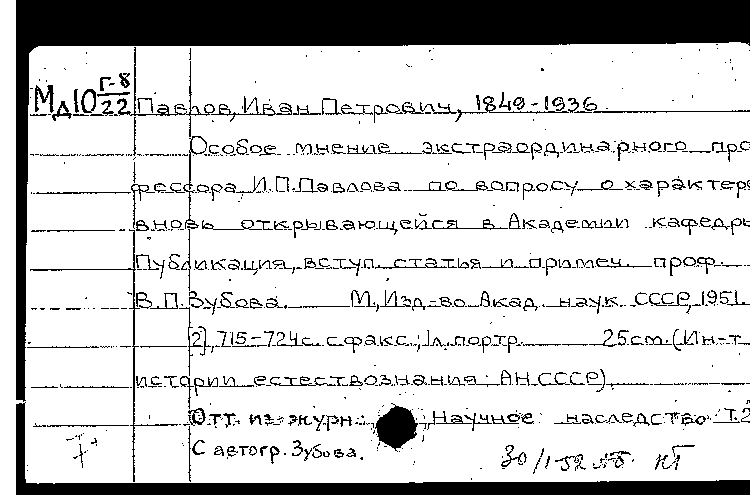 Мд10 Г-8/22 Павлов, Иван Петрович, 1849-1936
Особое мнение экстраординарного про
фессора И.П.Павлова по вопросу о характере
вновь открывающейся в Академии кафедры
Публикация, вступ. статья и примеч. проф.
В.П.Зубова. М., Изд-во Акад. наук СССР, 1951.
[2], 715-724с. с факс.; 1л. портр. 25см. (Ин-т
истории естествознания АН СССР).
Отт. из журн.: Научное наследство Т.2
С автогр. Зубова.